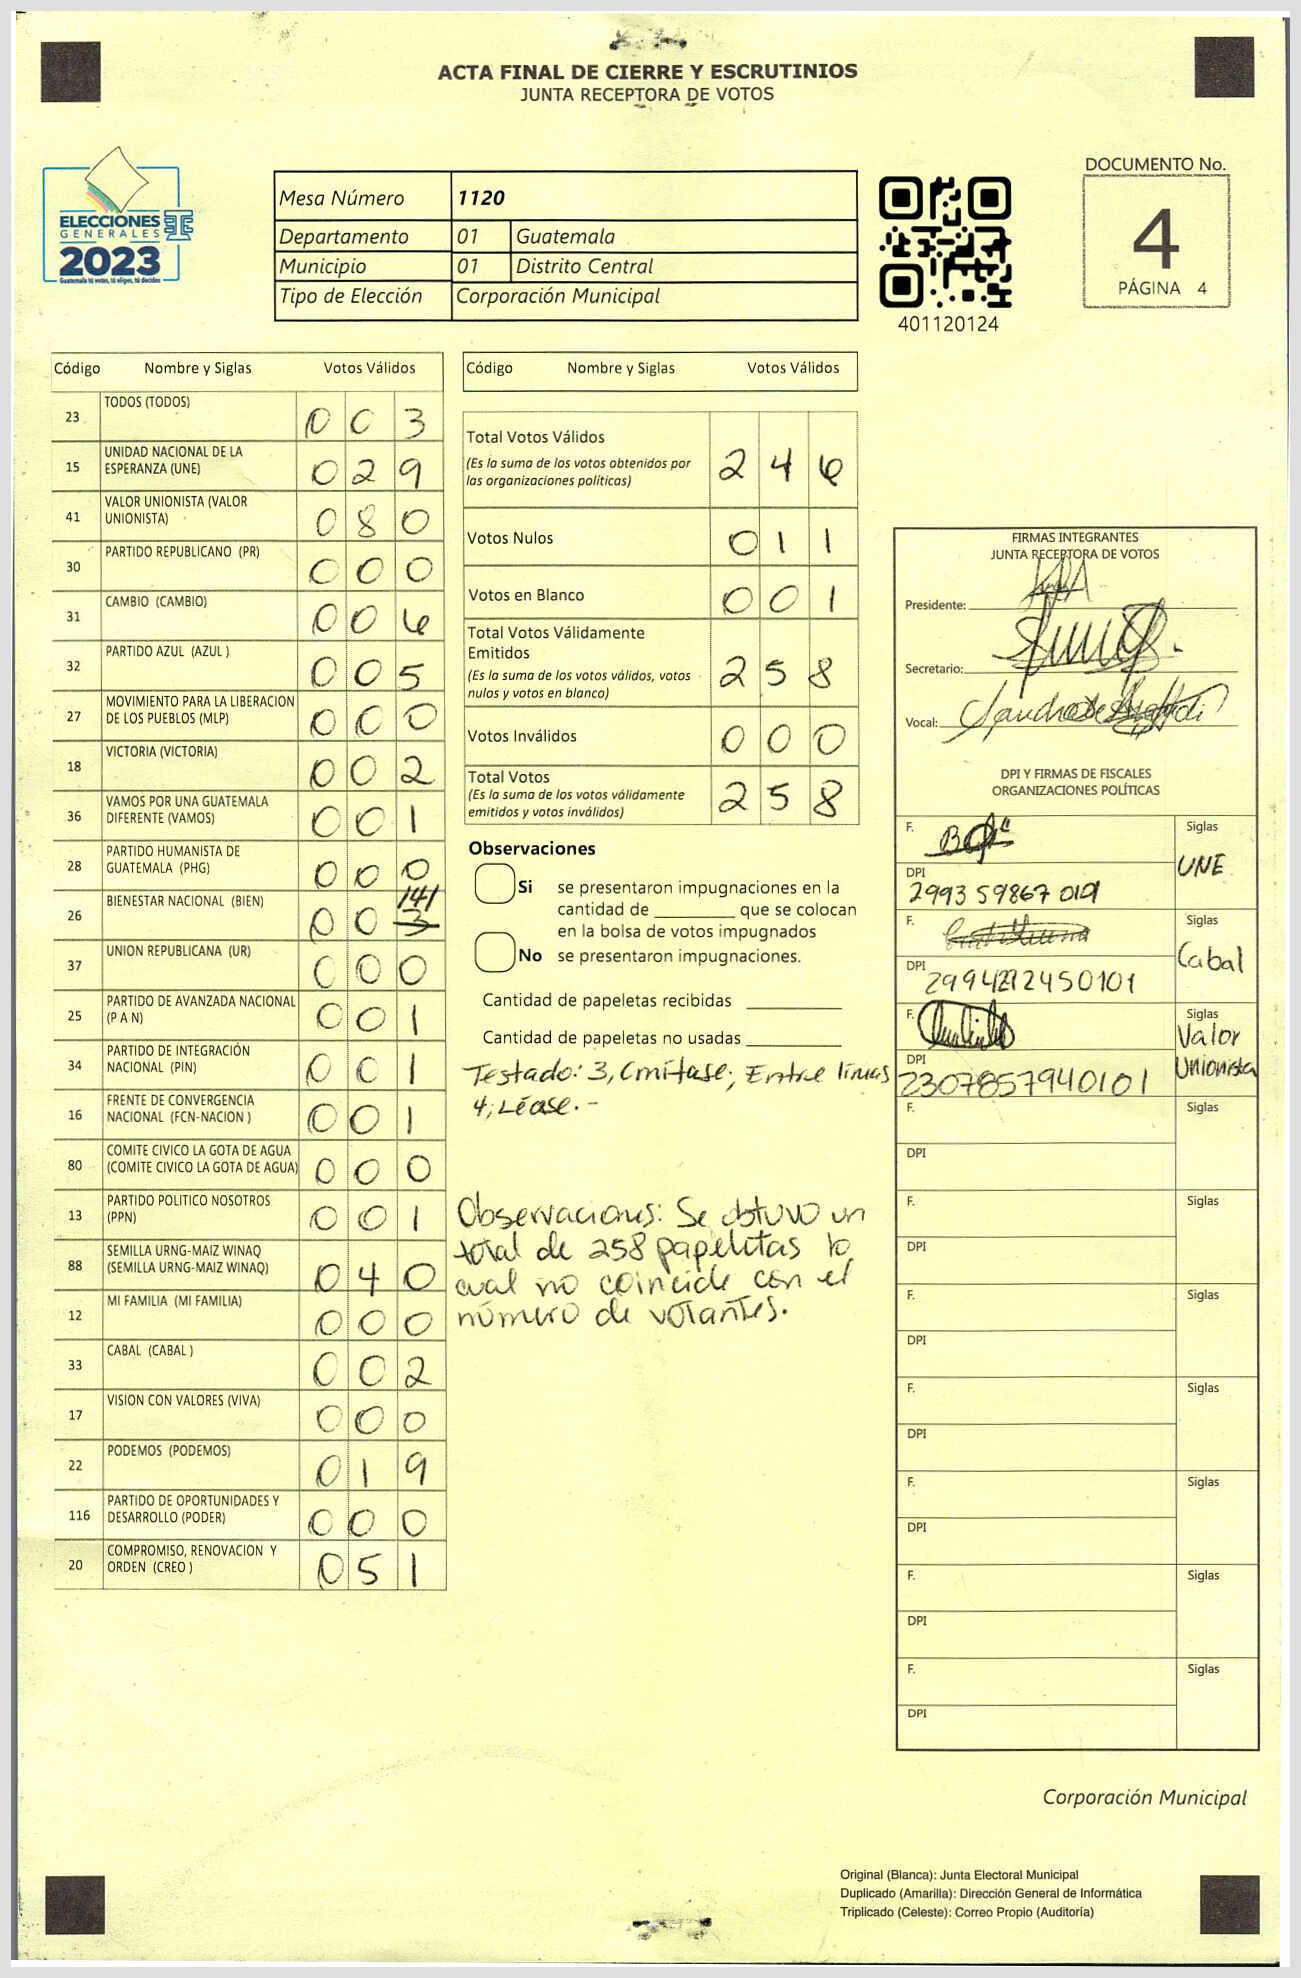 ACTA FINAL DE CIERRE Y ESCRUTINIOS
JUNTA RECEPTORA DE VOTOS
ELECCIONES
GENERALES
2023
Guatemala tú votas, tú eliges, tú decides
Mesa Número 1120
Departamento 01 Guatemala
Municipio 01 Distrito Central
Tipo de Elección Corporación Municipal
401120124
DOCUMENTO No.
4
PÁGINA 4
Código Nombre y Siglas Votos Válidos
23 TODOS (TODOS) 0 0 3
15 UNIDAD NACIONAL DE LA
ESPERANZA (UNE) 0 2 9
41 VALOR UNIONISTA (VALOR
UNIONISTA) 0 8 0
30 PARTIDO REPUBLICANO (PR) 0 0 0
31 CAMBIO (CAMBIO) 0 0 6
32 PARTIDO AZUL (AZUL ) 0 0 5
27 MOVIMIENTO PARA LA LIBERACION
DE LOS PUEBLOS (MLP) 0 0 0
18 VICTORIA (VICTORIA) 0 0 2
36 VAMOS POR UNA GUATEMALA
DIFERENTE (VAMOS) 0 0 1
28 PARTIDO HUMANISTA DE
GUATEMALA (PHG) 0 0 0
26 BIENESTAR NACIONAL (BIEN) 0 0 3 /4/
37 UNION REPUBLICANA (UR) 0 0 0
25 PARTIDO DE AVANZADA NACIONAL
(P A N) 0 0 1
34 PARTIDO DE INTEGRACIÓN
NACIONAL (PIN) 0 0 1
16 FRENTE DE CONVERGENCIA
NACIONAL (FCN-NACION ) 0 0 1
80 COMITE CIVICO LA GOTA DE AGUA
(COMITE CIVICO LA GOTA DE AGUA) 0 0 0
13 PARTIDO POLITICO NOSOTROS
(PPN) 0 0 1
88 SEMILLA URNG-MAIZ WINAQ
(SEMILLA URNG-MAIZ WINAQ) 0 4 0
12 MI FAMILIA (MI FAMILIA) 0 0 0
33 CABAL (CABAL ) 0 0 2
17 VISION CON VALORES (VIVA) 0 0 0
22 PODEMOS (PODEMOS) 0 1 9
116 PARTIDO DE OPORTUNIDADES Y
DESARROLLO (PODER) 0 0 0
20 COMPROMISO, RENOVACION Y
ORDEN (CREO ) 0 5 1
Código Nombre y Siglas Votos Válidos
Total Votos Válidos
(Es la suma de los votos obtenidos por
las organizaciones políticas) 2 4 6
Votos Nulos 0 1 1
Votos en Blanco 0 0 1
Total Votos Válidamente
Emitidos
(Es la suma de los votos válidos, votos
nulos y votos en blanco) 2 5 8
Votos Inválidos 0 0 0
Total Votos
(Es la suma de los votos válidamente
emitidos y votos inválidos) 2 5 8
Observaciones
Si se presentaron impugnaciones en la
cantidad de ________ que se colocan
en la bolsa de votos impugnados
No se presentaron impugnaciones.
Cantidad de papeletas recibidas
Cantidad de papeletas no usadas
Testado: 3, Omítase; Entre lineas
4; Léase.-
Observaciones: Se obtuvo un
total de 258 papeletas lo
cual no coincide con el
número de votantes.
FIRMAS INTEGRANTES
JUNTA RECEPTORA DE VOTOS
Presidente:
Secretario:
Vocal:
DPI Y FIRMAS DE FISCALES
ORGANIZACIONES POLÍTICAS
F. Siglas
UNE
DPI
2993 59867 0101
F. Siglas
Cabal
DPI
F. Siglas
Valor
Unionista
DPI
2307857940101
F. Siglas
DPI
F. Siglas
DPI
F. Siglas
DPI
F. Siglas
DPI
F. Siglas
DPI
F. Siglas
DPI
F. Siglas
DPI
Corporación Municipal
Original (Blanca): Junta Electoral Municipal
Duplicado (Amarilla): Dirección General de Informática
Triplicado (Celeste): Correo Propio (Auditoría)